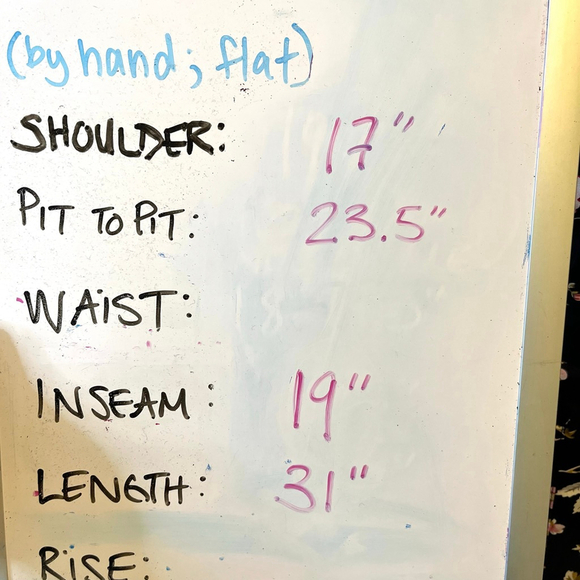 (by hand; flat)
SHOULDER: 17"
PIT TO PIT: 23.5"
WAiST:
INSEAM: 19"
LENGTH: 31"
RiSE: